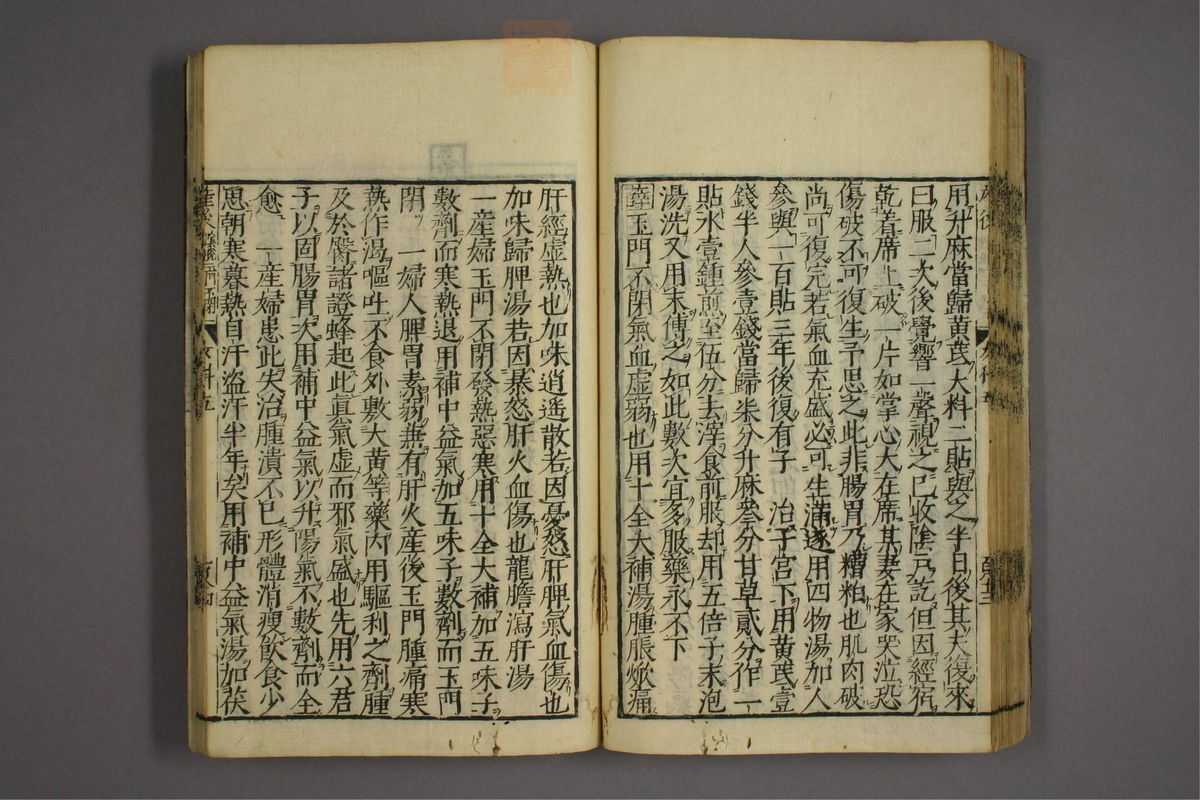 用升麻當歸黃芪大料二貼與之半日後其夫復來
曰服二次後覺響一聲視之已收陰乃訖但因經宿
乾着席上破一片如掌心大在席其妻在家哭泣恐
傷破不可復生予思之此非腸胃乃糟粕也肌肉破
尚可復完若氣血充盛必可生滿遂用四物湯加人
參與一百貼三年後復有子　治子宮下用黃芪壹
錢半人參壹錢當歸柒分升麻參分甘草貳分作一
貼水壹鍾煎至伍分去滓食前服却用五倍子末泡
湯洗又用末傅之如此數次宜多服藥永不下
薛玉門不閉氣血虛弱也用十全大補湯腫脹焮痛
肝經虛熱也加味逍遙散若因憂怒肝脾氣血傷也
加味歸脾湯若因暴怒肝火血傷也龍膽瀉肝湯
一產婦玉門不閉發熱惡寒用十全大補加五味子
數劑而寒熱退用補中益氣加五味子數劑而玉門
閉　一婦人脾胃素弱兼有肝火產後玉門腫痛寒
熱作渴嘔吐不食外敷大黃等藥內用驅利之劑腫
及於臀諸證蜂起此真氣虛而邪氣盛也先用六君
子以固腸胃次用補中益氣以升陽氣不數劑而全
愈　一產婦患此失治腫潰不已形體消瘦飲食少
思朝寒暮熱自汗盜汗半年矣用補中益氣湯加茯